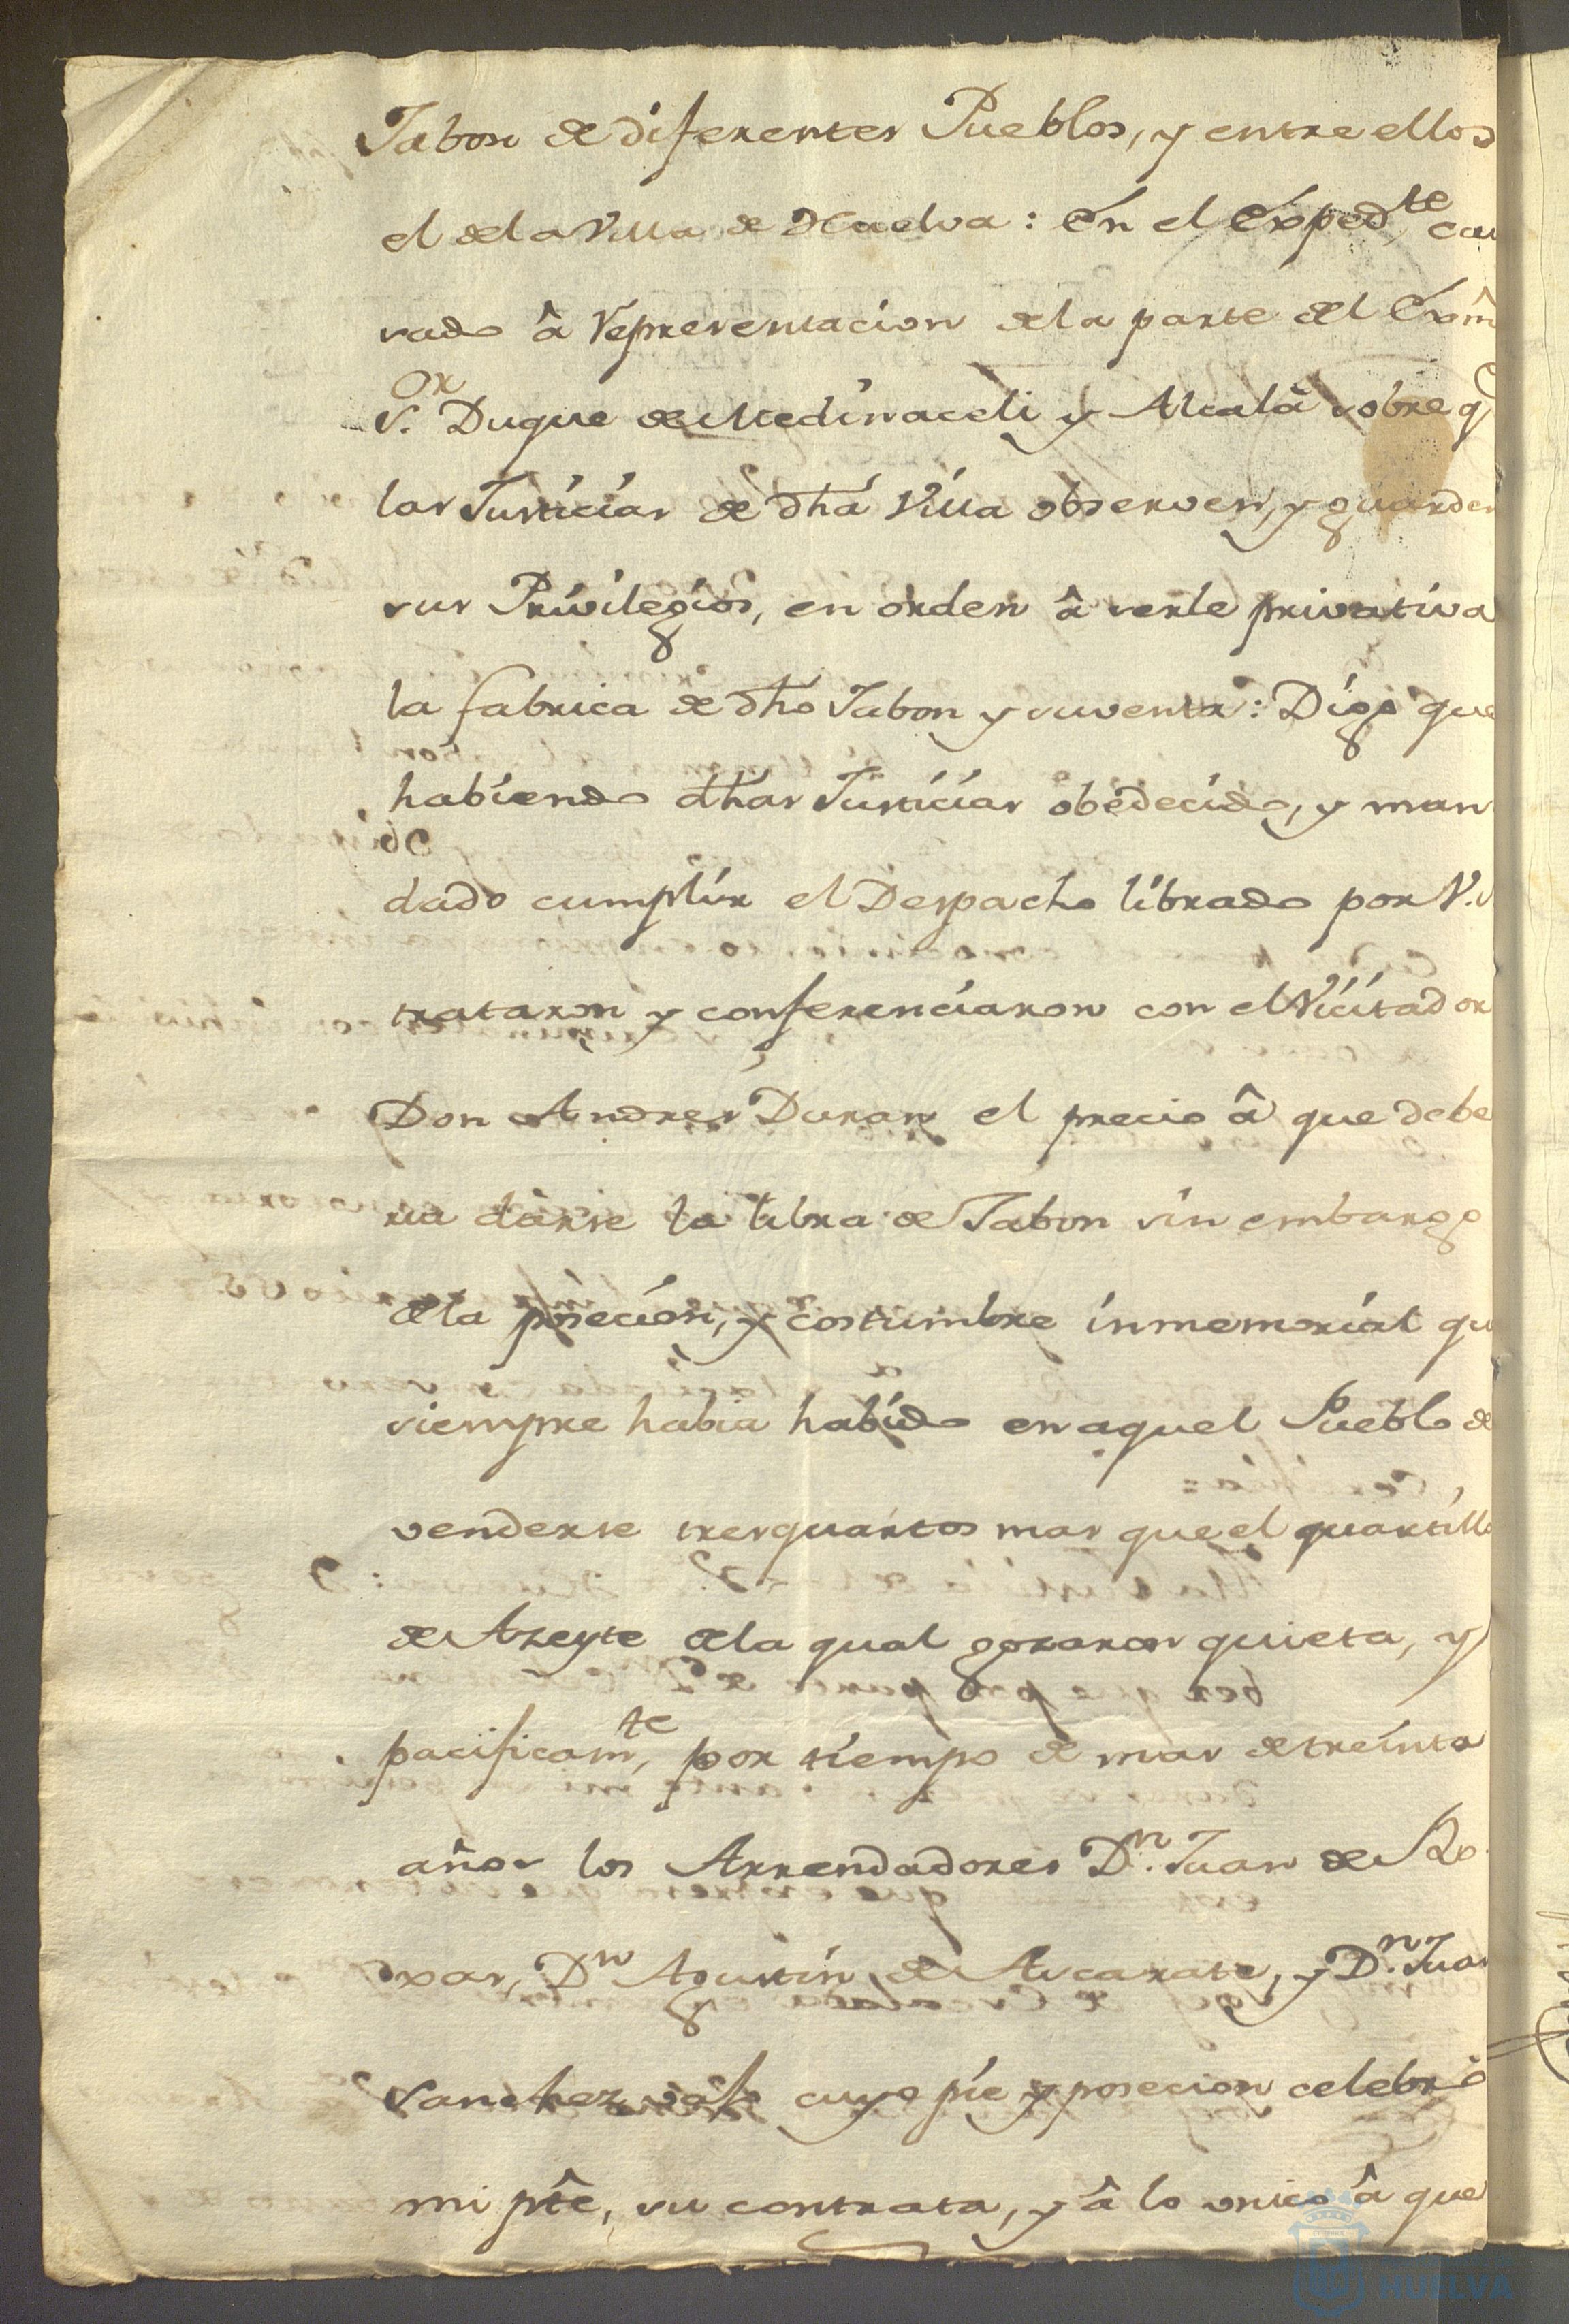 Jabon de diferentes Pueblos, y entre ellos
el de la Villa de Huelva: En el Expedte cau
sado â representacion de la parte del Exm̂
Sor. Duque de Medinaceli y Alcalâ sobre q
las Justicias de dha Villa observen, y guarden
sus Privilegios, en orden â serle privativa
la fabrica de dho Jabon y su venta: Digo que
habiendo dhas Justicias obedecido, y man
dado cumplir el Despacho librado por V.S
trataron y conferenciaron con el Vicitador
Don Andres Duran el precio â que debe
ria darse la libra de Jabon sin embargo
de la posecion, y costumbre inmemorial qu
siempre habia habido en aquel Pueblo de
venderse tres quartos mas que el quartillo
de Azeyte de la qual gozaron quieta, y
pacificamte, por tiempo de mas de treinta
años los Arrendadores Dn. Juan de Ro
xas, Dn Agustin de Ascarate, y Dn. Juan
Sanchez, vaxo cuyo pie y posecion celebró
mi pte, su contrata, y â lo unico â que
HUELVA